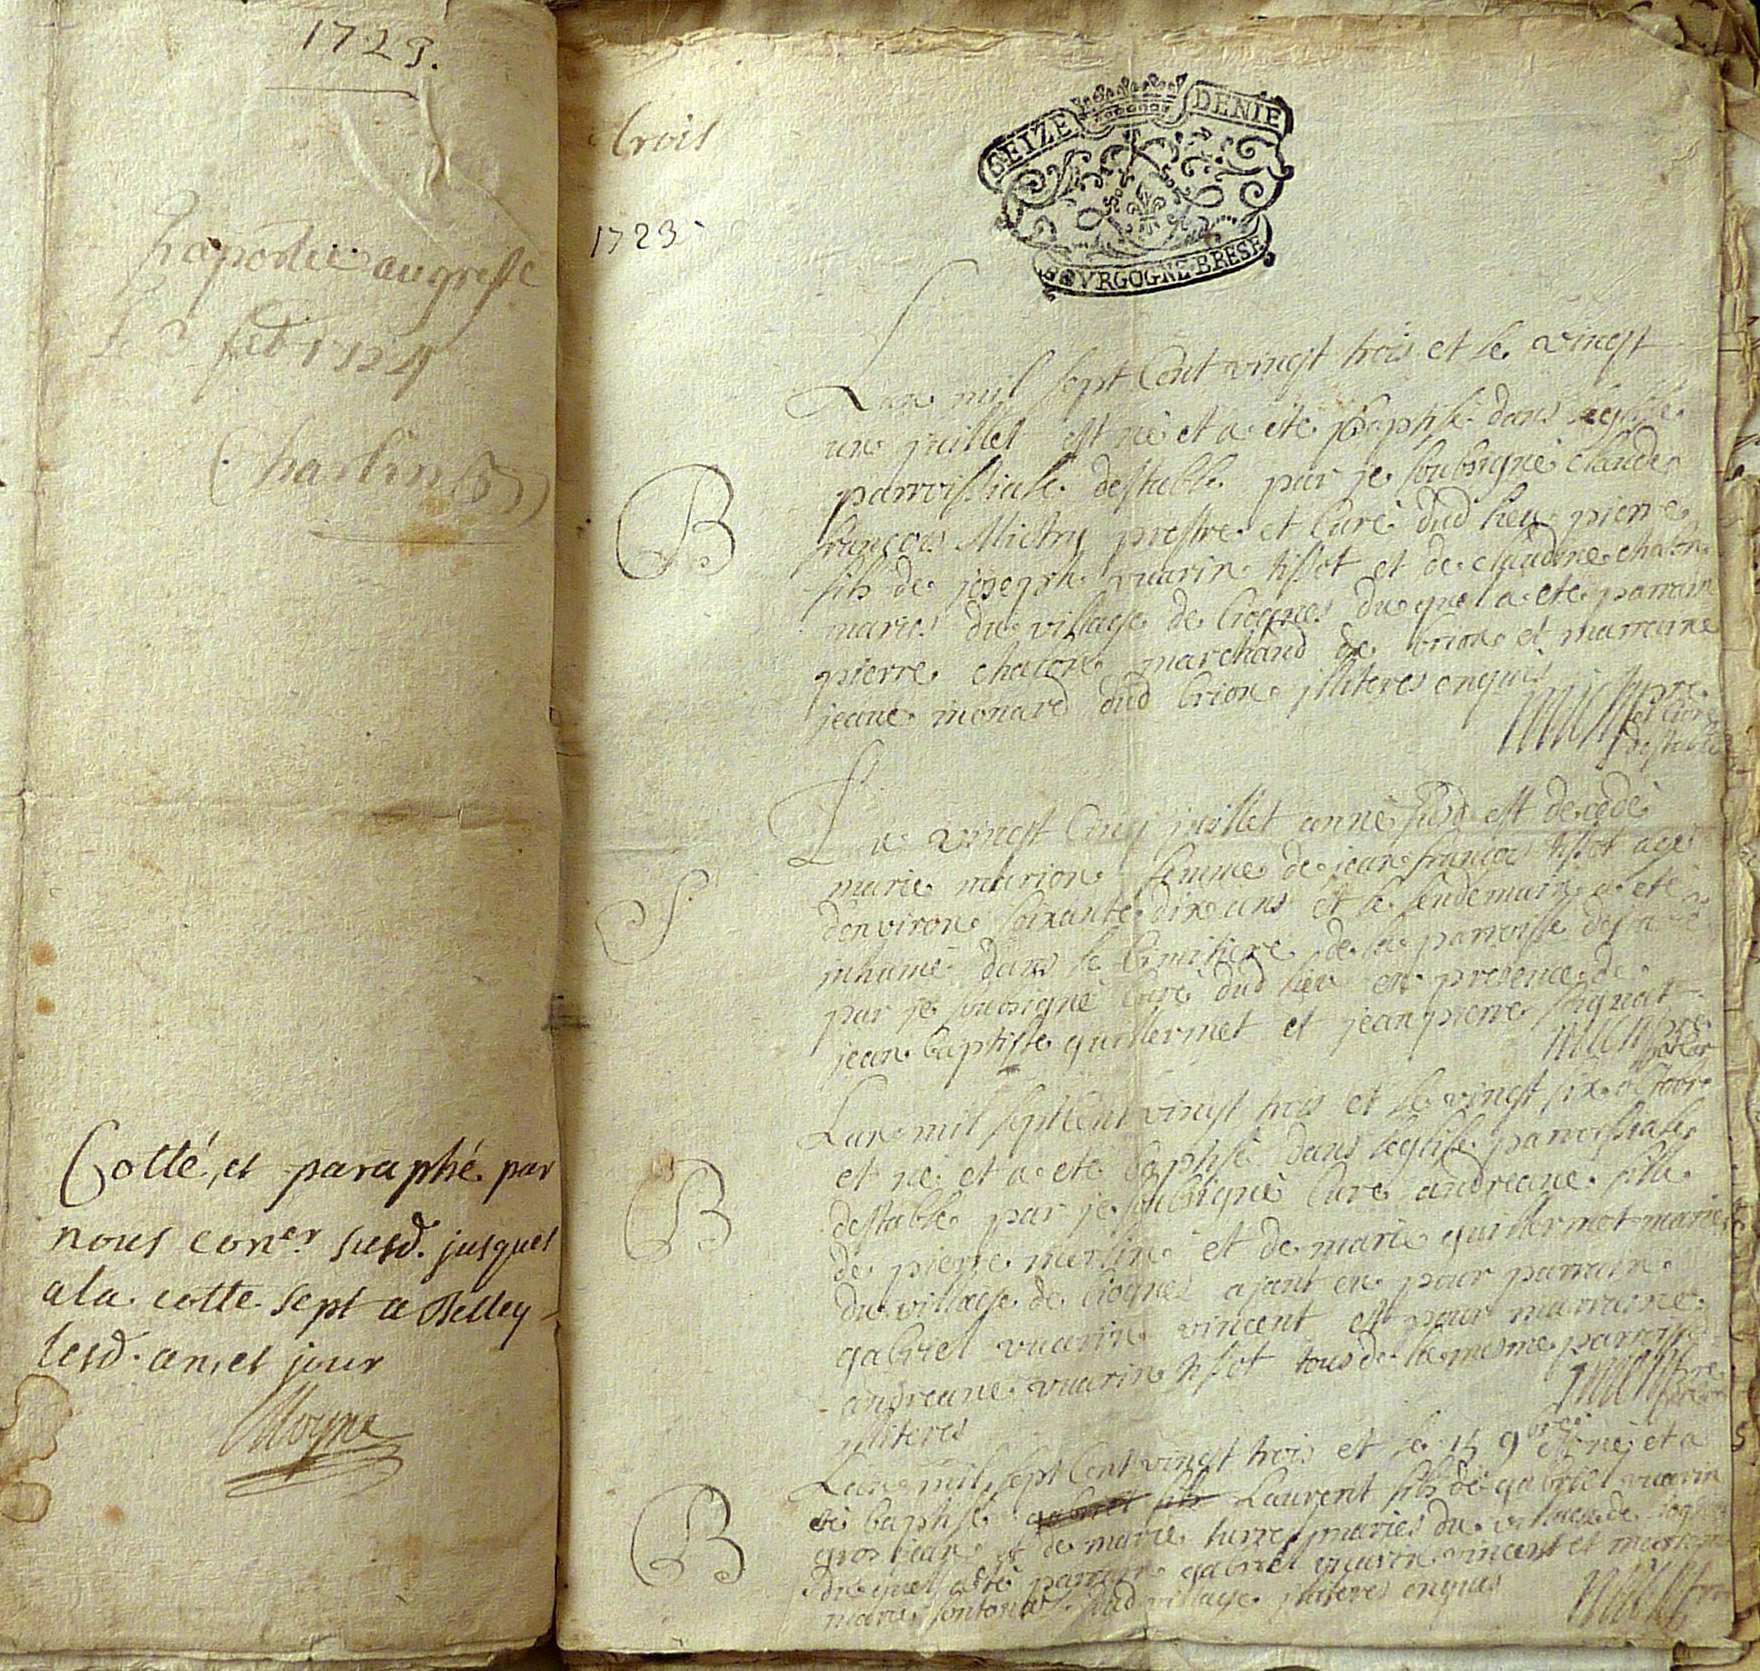 1723.
Raportee au greffe
le 3 feb 1724
Charlin
Cotté, et paraphé par
nous con.er susd. jusques
a la cotte sept a Belley
lesd. an, et jour
Moyne
trois
1723
SEIZE DENIE
BOVRGOGNE BRESE
Lan mil sept Cent vingt trois et le vingt
un juillet est né et a ete baptisé dans leglise
parroissiale destable par je soubsigné claude
françois Mictry prestre et Curé dud lieu pierre
fils de joseph vuarin tissot et de claudine chalon
mariés du village de Ciognes du quel a ete parrain
pierre chalon marchand de brion et marraine
jeane monard dud brion illiteres enquis
pre
et Curé
destable
B
Le vingt Cinq juillet anné susd est decedé
marie marion femme de jean françois tissot agé
denviron soixante dix ans et le lendemain a eté
inhumé dans le Cimitiere de la parroisse
par je soubsigné Curé dud lieu en presence de
jean baptiste guillermet et jean pierre
pre
S
Lan mil sept Cent vingt trois et le vingt six octobre
et né et a eté baptisé dans leglise parroissiale
destable par je soubsigné Curé andreane fille
de pierre merlin et de marie guillermet mariés
du village de Ciognes ajant eu pour parrain
gabriel vuarin vincent et pour marraine
andreane vuarin tissot tous de la mesme parroisse
illiteres
pre
B
Lan mil sept Cent vingt trois et le 15 9bre est né et a
eté baptisé gabriel fils Laurent fils de gabriel vuarin
gros jean et de marie mariés du village de
du quel a eté parrain gabriel vuarin vincent et marraine
marie dud village illiteres enquis
B